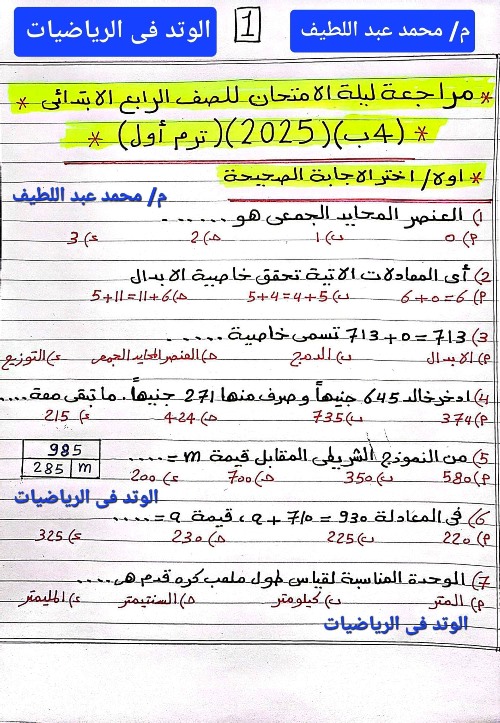 م/ محمد عبد اللطيف 1 الوتد فى الرياضيات
* مراجعة ليلة الامتحان للصف الرابع الابتدائى *
* (4ب) (2025) (ترم أول) *
* اولا/ اختر الاجابة الصحيحة
م/ محمد عبد اللطيف
1) العنصر المحايد الجمعى هو ......
م) 0 ب) 1 حـ) 2 ء) 3
2) أى المعادلات الاتية تحقق خاصية الابدال
م) 6+0=6 ب) 5+4=4+5 حـ) 5+11=11+6
3) 713+0=713 تسمى خاصية .....
م) الابدال ب) الدمج حـ) العنصر المحايد الجمعى ء) التوزيع
4) ادخر خالد 645 جنيهاً وصرف منها 271 جنيهاً. ما تبقى معه....
م) 374 ب) 735 حـ) 424 ء) 215
5) من النموذج الشريطى المقابل قيمة m = ....
985
285 m
م) 580 ب) 350 حـ) 700 ء) 200
الوتد فى الرياضيات
6) فى المعادلة 930 = 710 + a ، قيمة a = ....
م) 220 ب) 225 حـ) 230 ء) 325
7) الوحدة المناسبة لقياس طول ملعب كرة قدم هى ....
م) المتر ب) كيلومتر حـ) السنتيمتر ء) المليمتر
الوتد فى الرياضيات